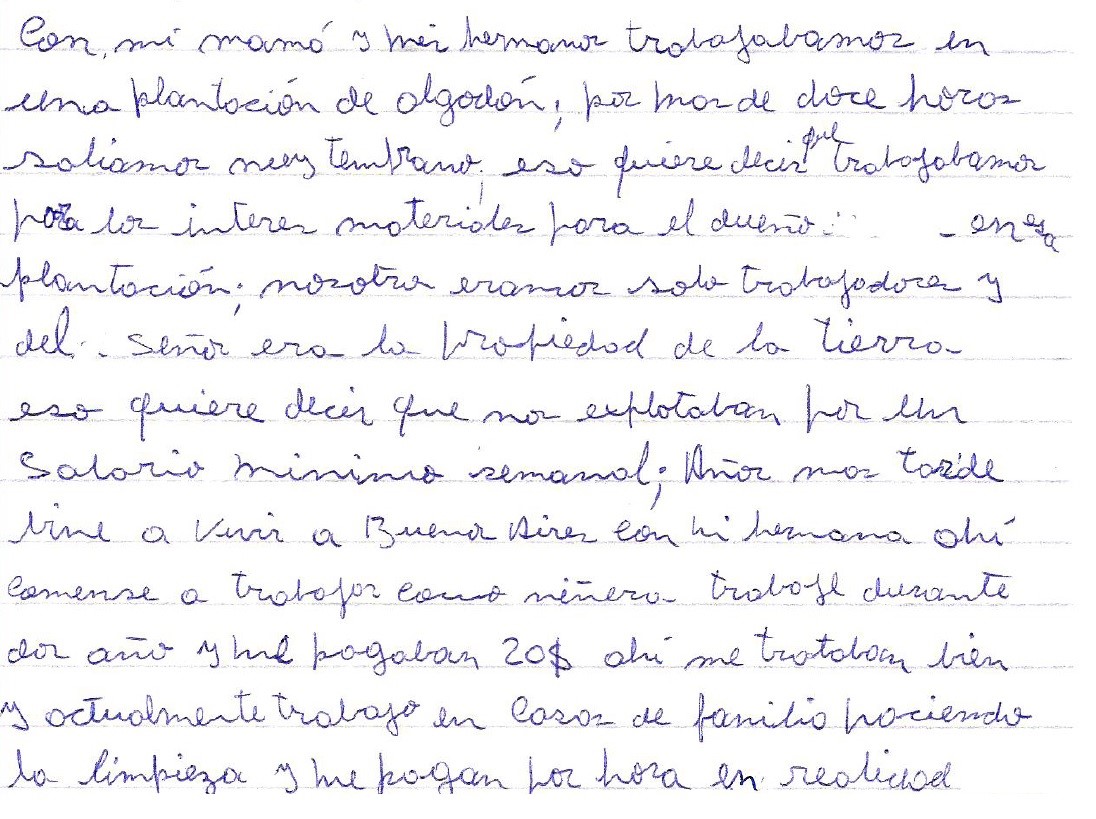 Con, mi mamá y mis hermanos trabajabamos en
una plantación de algodón; por mas de doce horas
saliamos muy temprano; eso quiere decir que trabajabamos
para los interes materiales para el dueño. - en esa
plantación; nosotros eramos solo trabajadores y
del. Señor era la propiedad de la tierra
eso quiere decir que nos explotaban por un
Salario minimo semanal; Años mas tarde
vine a vivir a Buenos Aires con mi hermana ahí
comense a trabajar como niñera trabaje durante
dos año y me pagaban 20$ ahí me trataban bien
y actualmente trabajo en casas de familia haciendo
la limpieza y me pagan por hora en realidad